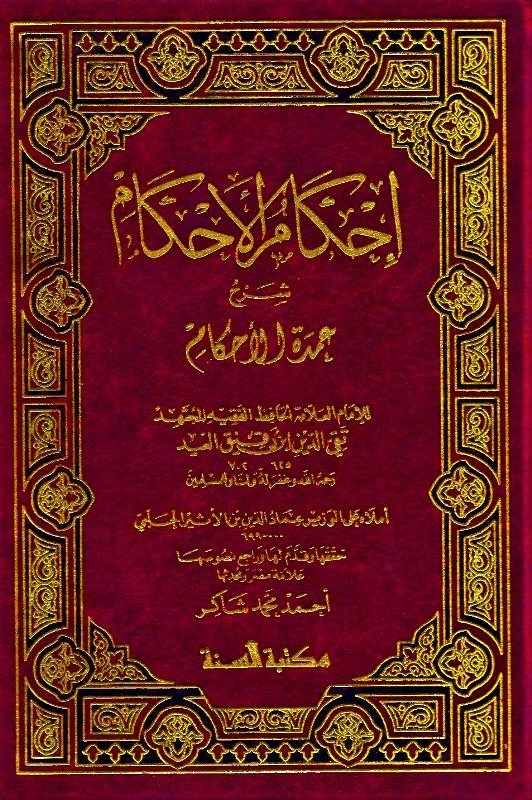 إِحْكَامُ الأَحْكَامِ
شَرْحُ
عمدة الأحكام
للإمام العلامة الحافظ الفقيه المجتهد
تقي الدين ابن دقيق العيد
٦٢٥ ٧٠٢
رحمه الله وغفر له ولنا وللمسلمين
أملاه على الوزير عماد الدين بن الأثير الحلبي
٦٩٩-٠٠٠
حققها وقدم لها وراجع نصوصها
علامة مصر ومحدثها
أحمد محمد شاكر
مكتبة السنة